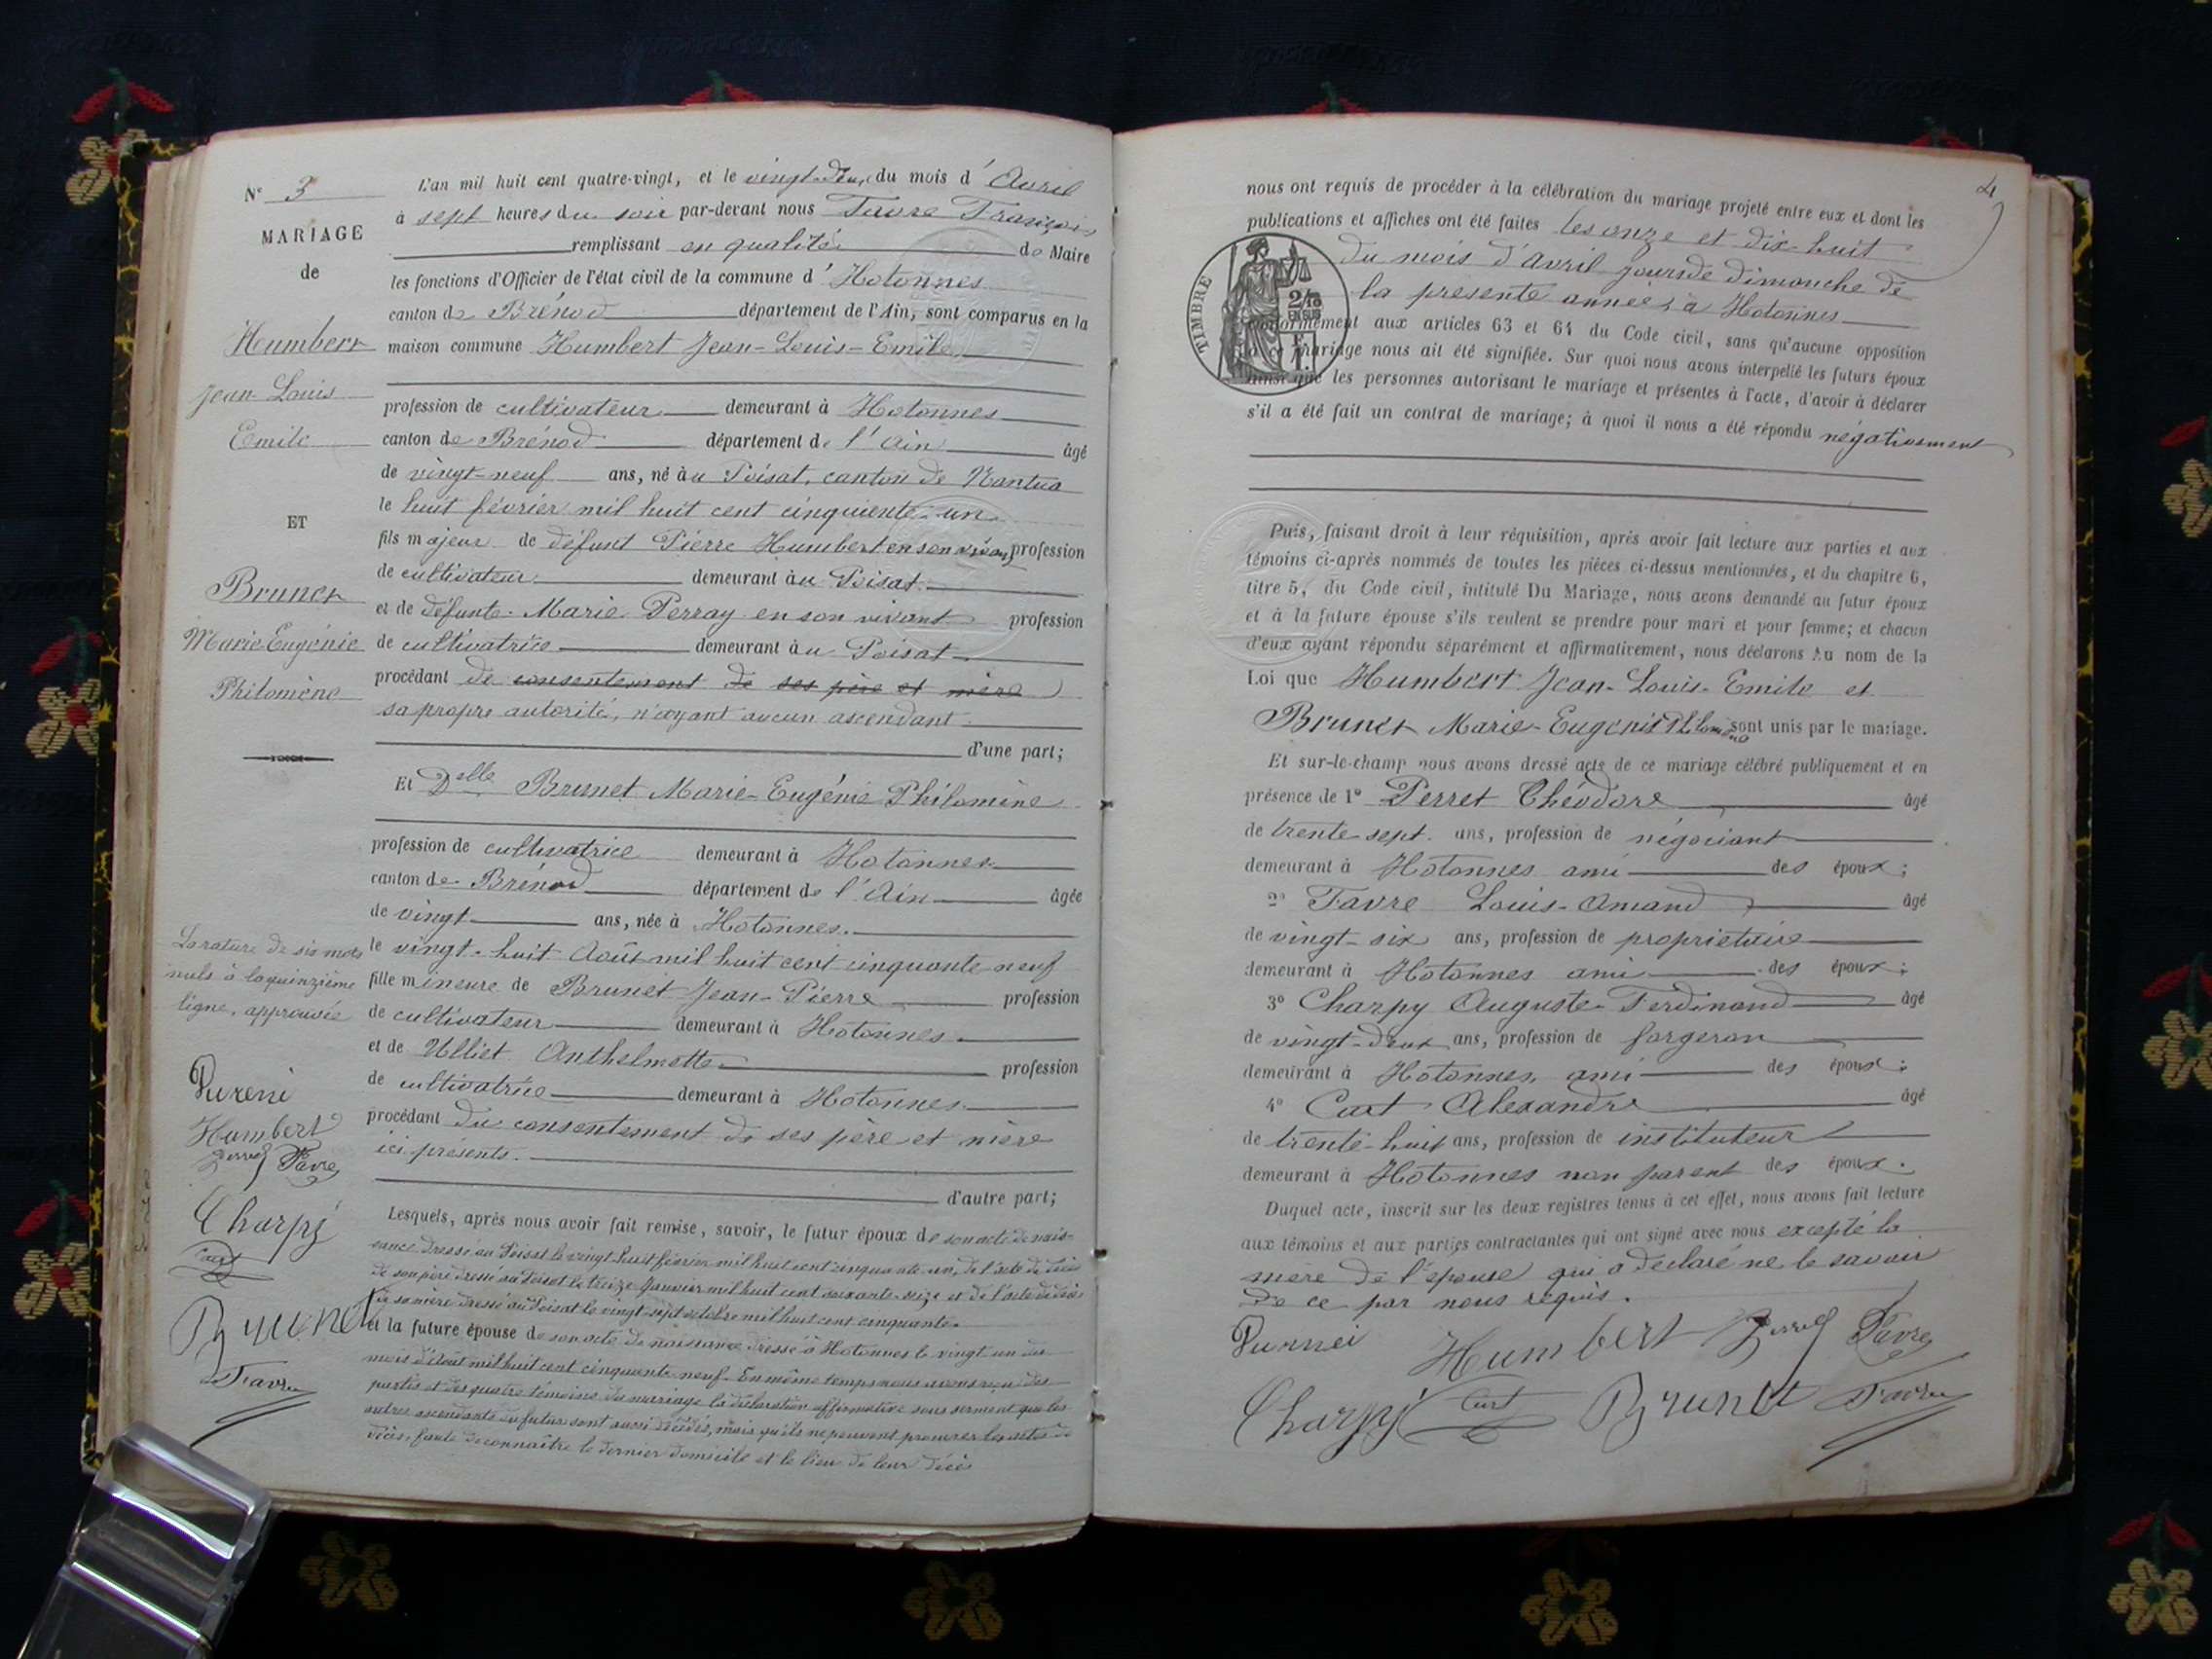 N° 3
MARIAGE
de
Humbert
Jean-Louis
Emile
ET
Brunet
Marie Eugénie
Philomène
La rature de six mots
nuls à la quinzième
ligne, approuvée
Humbert
Perret Favre
Charpy
Cart
Brunet
Favre
L'an mil huit cent quatre-vingt, et le vingt-deux du mois d'Avril
à sept heures du soir par-devant nous Favre François
remplissant en qualité de Maire
les fonctions d'Officier de l'état civil de la commune d'Hotonnes
canton de Brénod département de l'Ain, sont comparus en la
maison commune Humbert Jean-Louis-Emile
profession de cultivateur demeurant à Hotonnes
canton de Brénod département de l'Ain âgé
de vingt-neuf ans, né au Poisat, canton de Nantua
le huit février mil huit cent cinquiente-un
fils majeur de défunt Pierre Humbert en son vivant profession
de cultivateur demeurant au Poisat
et de défunte Marie Perray en son vivant profession
de cultivatrice demeurant au Poisat
procédant de consentement de ses père et mère
sa propre autorité, n'ayant aucun ascendant
d'une part;
Et Delle Brunet Marie-Eugénie Philomène
profession de cultivatrice demeurant à Hotonnes
canton de Brénod département de l'Ain âgée
de vingt ans, née à Hotonnes.
le vingt-huit Août mil huit cent cinquante-neuf
fille mineure de Brunet Jean-Pierre profession
de cultivateur demeurant à Hotonnes
et de Ulliet Anthelmette profession
de cultivatrice demeurant à Hotonnes
procédant du consentement de ses père et mère
ici présents.
d'autre part;
Lesquels, après nous avoir fait remise, savoir, le futur époux de son acte de nais-
sance dressé au Poisat le vingt-huit février mil huit cent cinquante-un, de l'acte de décès
de son père dressé au Poisat le treize Janvier mil huit cent soixante-seize et de l'acte de décès
de sa mère dressé au Poisat le vingt-sept octobre mil huit cent cinquante.
et la future épouse de son acte de naissance dressé à Hotonnes le vingt un du
mois d'Août mil huit cent cinquante-neuf. En même temps nous avons reçu des
parties et des quatre témoins du mariage la déclaration affirmative sous serment que les
autres ascendants du futur sont aussi décédés, mais qu'ils ne peuvent procurer les actes de
décès, faute de connaître le dernier domicile et le lieu de leur décès
4
nous ont requis de procéder à la célébration du mariage projeté entre eux et dont les
publications et affiches ont été faites les onze et dix-huit
du mois d'avril jours de dimanche de
la présente année, à Hotonnes
TIMBRE
2/10
EN SUS
1 F.
conformément aux articles 63 et 64 du Code civil, sans qu'aucune opposition
à ce mariage nous ait été signifiée. Sur quoi nous avons interpellé les futurs époux
ainsi que les personnes autorisant le mariage et présentes à l'acte, d'avoir à déclarer
s'il a été fait un contrat de mariage; à quoi il nous a été répondu négativement
Puis, faisant droit à leur réquisition, après avoir fait lecture aux parties et aux
témoins ci-après nommés de toutes les pièces ci-dessus mentionnées, et du chapitre 6,
titre 5, du Code civil, intitulé Du Mariage, nous avons demandé au futur époux
et à la future épouse s'ils veulent se prendre pour mari et pour femme; et chacun
d'eux ayant répondu séparément et affirmativement, nous déclarons Au nom de la
Loi que Humbert Jean-Louis-Emile et
Brunet Marie-Eugénie Philomène sont unis par le mariage.
Et sur-le-champ nous avons dressé acte de ce mariage célébré publiquement et en
présence de 1° Perret Théodore âgé
de trente sept ans, profession de négociant
demeurant à Hotonnes ami des époux;
2° Favre Louis-Amand âgé
de vingt-six ans, profession de propriétaire
demeurant à Hotonnes ami des époux;
3° Charpy Auguste-Ferdinand âgé
de vingt-deux ans, profession de forgeron
demeurant à Hotonnes, ami des époux;
4° Cart Alexandre âgé
de trente-huit ans, profession de instituteur
demeurant à Hotonnes non parent des époux.
Duquel acte, inscrit sur les deux registres tenus à cet effet, nous avons fait lecture
aux témoins et aux parties contractantes qui ont signé avec nous excepté la
mère de l'épouse qui a déclaré ne le savoir
de ce par nous requis.
Humbert Perret Favre
Charpy Cart Brunet Favre